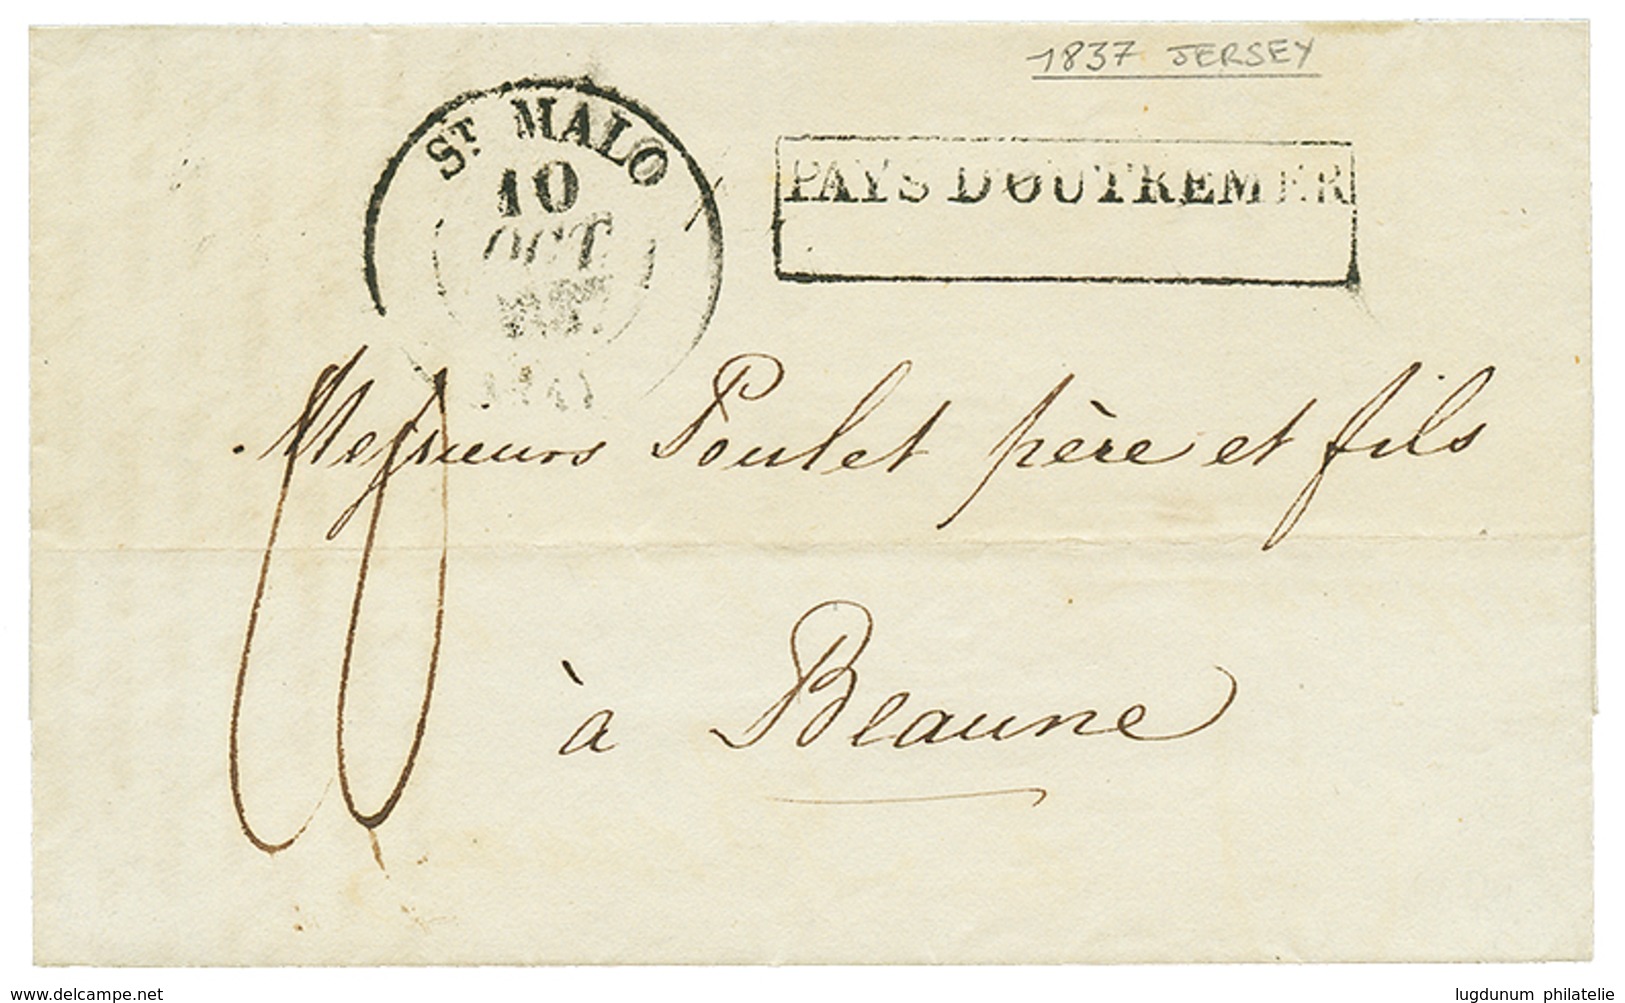 1837 JERSEY
ST. MALO
10
OCT
PAYS D'OUTREMER
Messieurs Poulet père et fils
à Beaune
www.delcampe.net
lugdunum philatelie